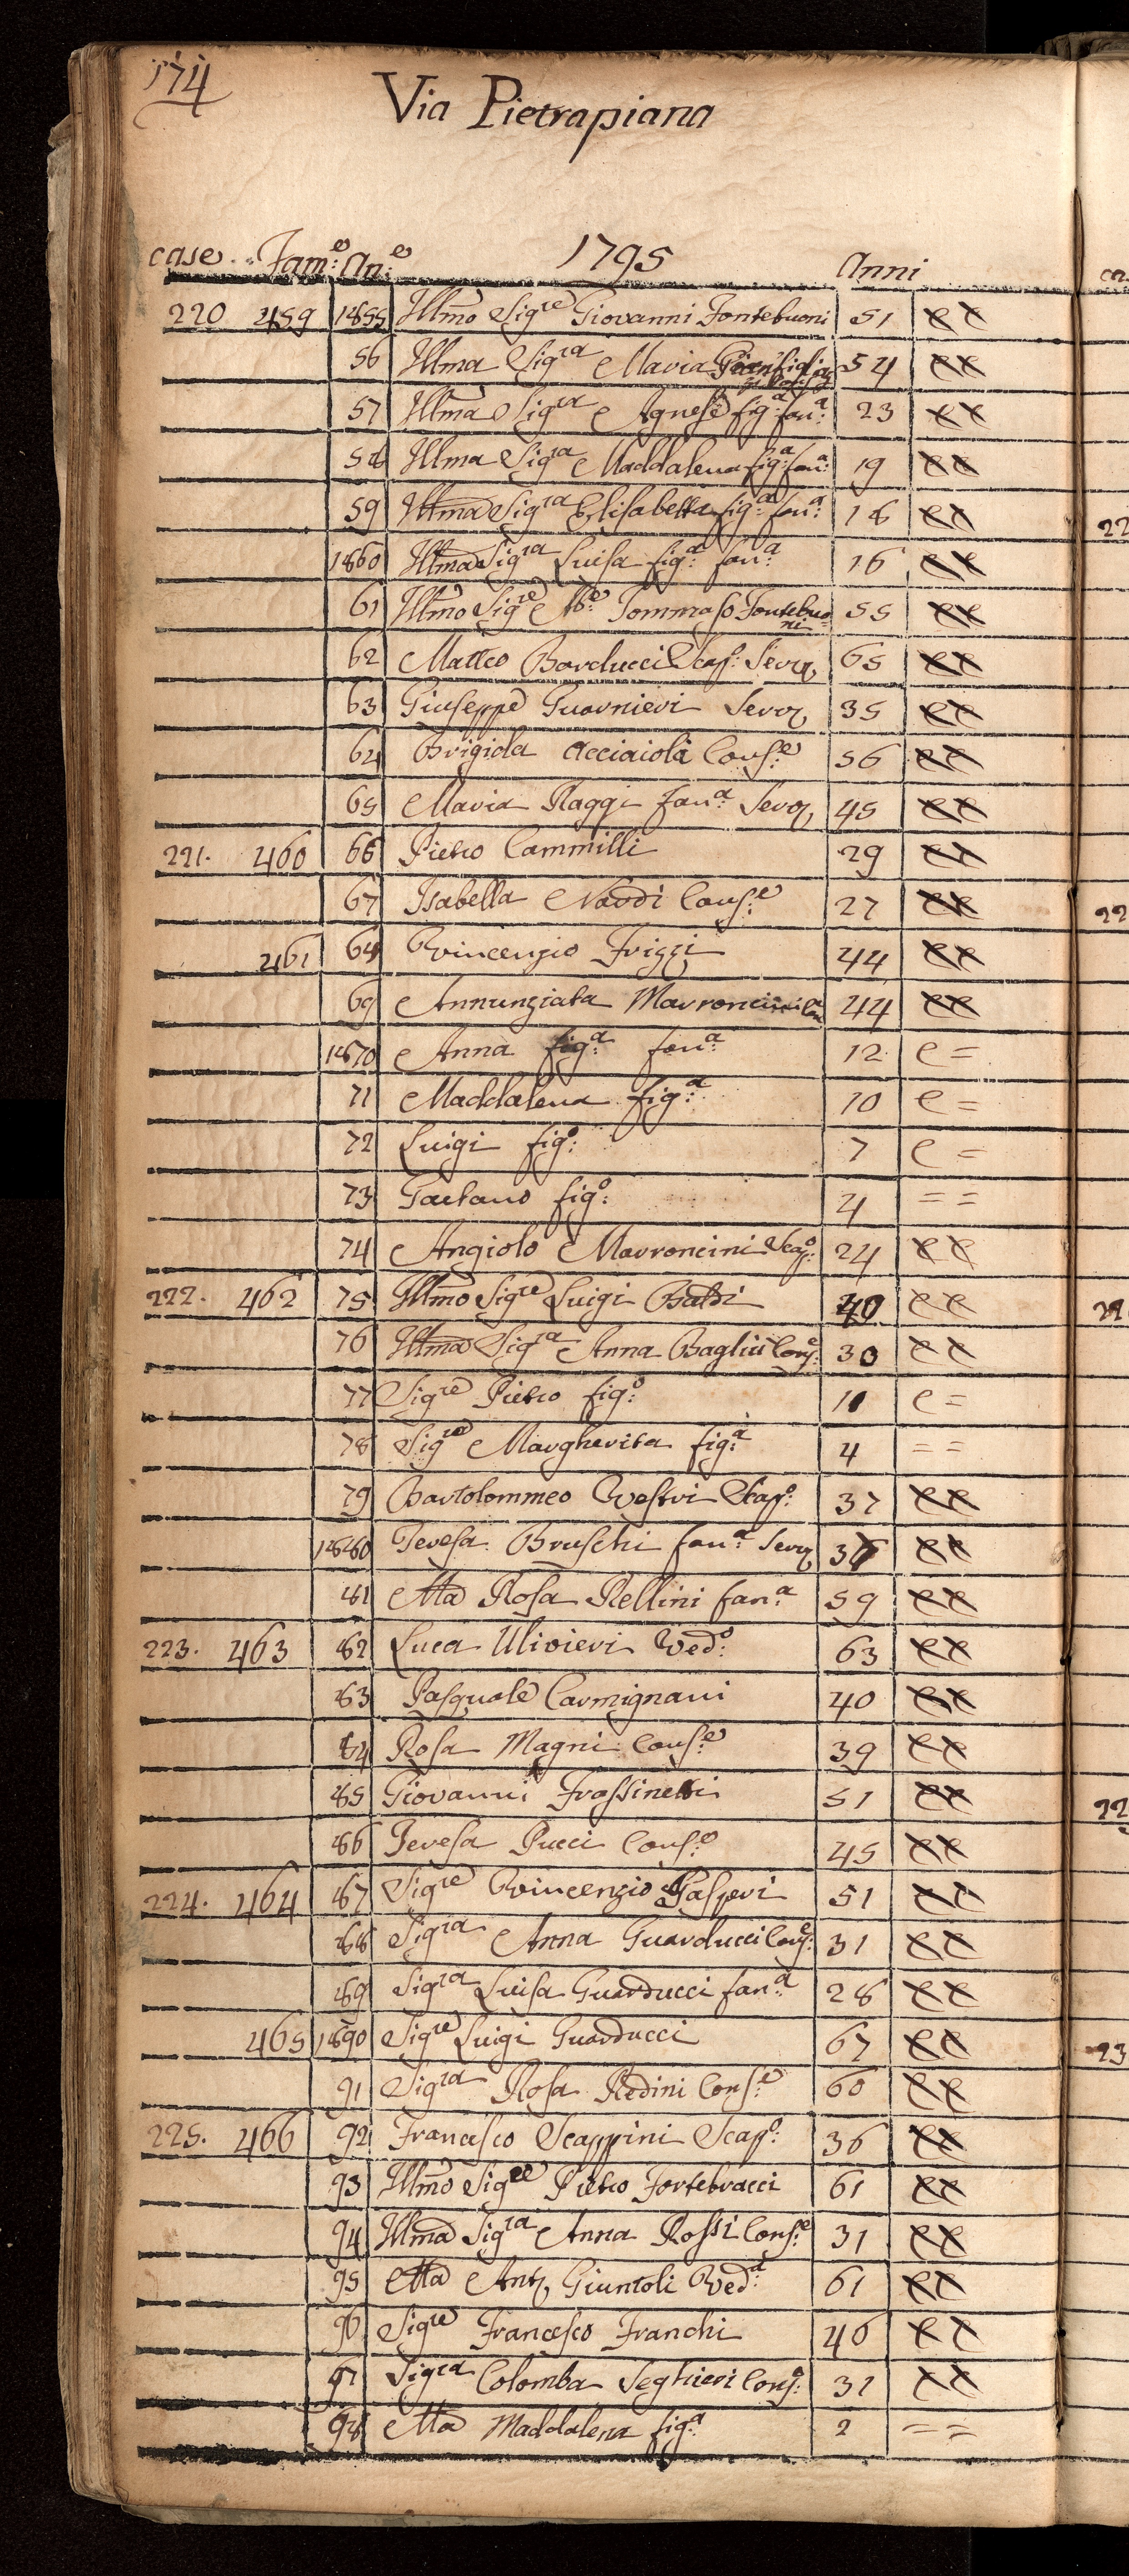 174
Via Pietrapiana
case Fam:e An:e 1795 Anni
220 459 1855 Illmo Sigre Giovanni Fontebuoni 51
56 Illma Sigra Maria 54
57 Illma Sigra Agnese fig:a fan:a 23
58 Illma Sigra Maddalena fig:a fan:a 19
59 Illma Sigra Elisabetta fig:a fan:a 18
1860 Illma Sigra Luisa fig:a fan:a 16
61 Illmo Sigre Tommaso Fontebuoni 55
62 Matteo Barducci Scap:o Serv. 65
63 Giuseppe Guarnieri Serv. 35
64 Brigida Acciaioli Cons:e 56
65 Maria Raggi fan:a Serv. 45
221. 460 66 Pietro Cammilli 29
67 Isabella Nardi Cons:e 27
461 68 Vincenzio Frizzi 44
69 Annunziata Marroncini 44
1870 Anna fig:a fan:a 12 e =
71 Maddalena fig:a 10 e =
72 Luigi fig:o 7 e =
73 Gaetano fig:o 4 = =
74 Angiolo Marroncini Scap:o 24
222. 462 75 Illmo Sigre Luigi Baldi 40
76 Illma Sigra Anna Cons:e 30
77 Sigre Pietro fig:o 10 e =
78 Sigra Margherita fig:a 4 = =
79 Bartolommeo Vestri Scap:o 37
1880 Teresa Bruschi fan:a Serv. 36
81 Ma Rosa Rellini fan:a 59
223. 463 82 Luca Ulivieri Ved:o 63
83 Pasquale Carmignani 40
84 Rosa Magni Cons:e 39
85 Giovanni Frassinetti 51
86 Teresa Pucci Cons:e 45
224. 464 87 Sigre Vincenzio Gasperi 51
88 Sigra Anna Guarducci Cons:e 31
89 Sigra Luisa Guarducci fan:a 28
465 1890 Sigre Luigi Guarducci 67
91 Sigra Rosa Redini Cons:e 60
225. 466 92 Francesco Scappini Scap:o 36
93 Illmo Sigre Pietro Fortebracci 61
94 Illma Sigra Anna Rossi Cons:e 31
95 Ma Ant. Giuntoli Ved:a 61
96 Sigre Francesco Franchi 46
97 Sigra Colomba Seghieri Cons:e 31
98 Ma Maddalena fig:a 2 = =